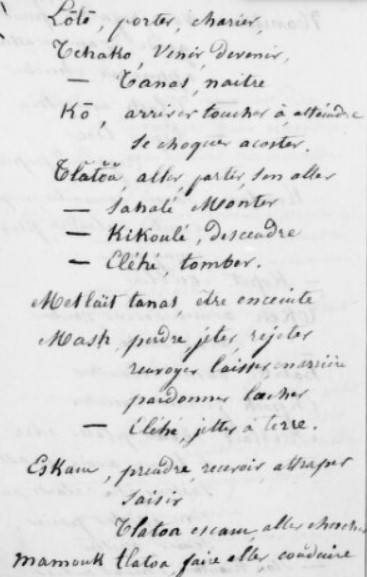 Lôlô, porter, charier,
Tchako, Venir, devenir,
— Tanas, naitre
Kō, arriver toucher à, atteindre
se choquer acoster.
Tlatoa, aller, partir, s'en aller
— Sahalé Monter
— Kikoulé, descendre
— Eléhé tomber.
Metlait tanas être enceinte
Mash, perdre, jeter, rejeter
renvoyer, laisser en arrière
pardonner lacher
— Eléhé, jetter à terre.
Eskam, prendre, recevoir attraper
saisir
Tlatoa escam, aller chercher
Mamouk tlatoa faire aller conduire